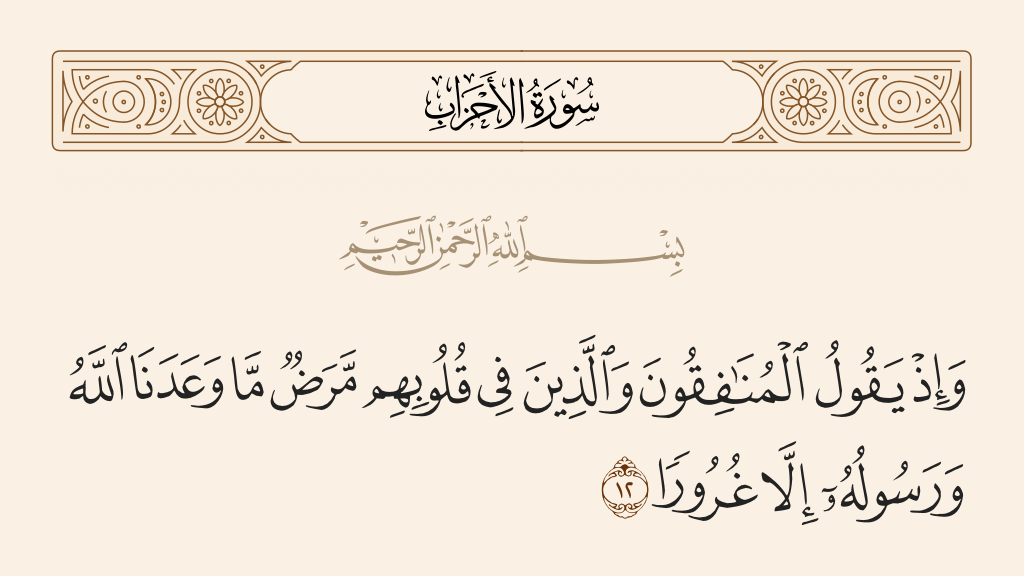 سُورَةُ الأَحْزَابِ
بِسْمِ ٱللَّهِ ٱلرَّحْمَٰنِ ٱلرَّحِيمِ
وَإِذْ يَقُولُ ٱلْمُنَٰفِقُونَ وَٱلَّذِينَ فِى قُلُوبِهِم مَّرَضٌ مَّا وَعَدَنَا ٱللَّهُ
وَرَسُولُهُۥٓ إِلَّا غُرُورًا ١٢